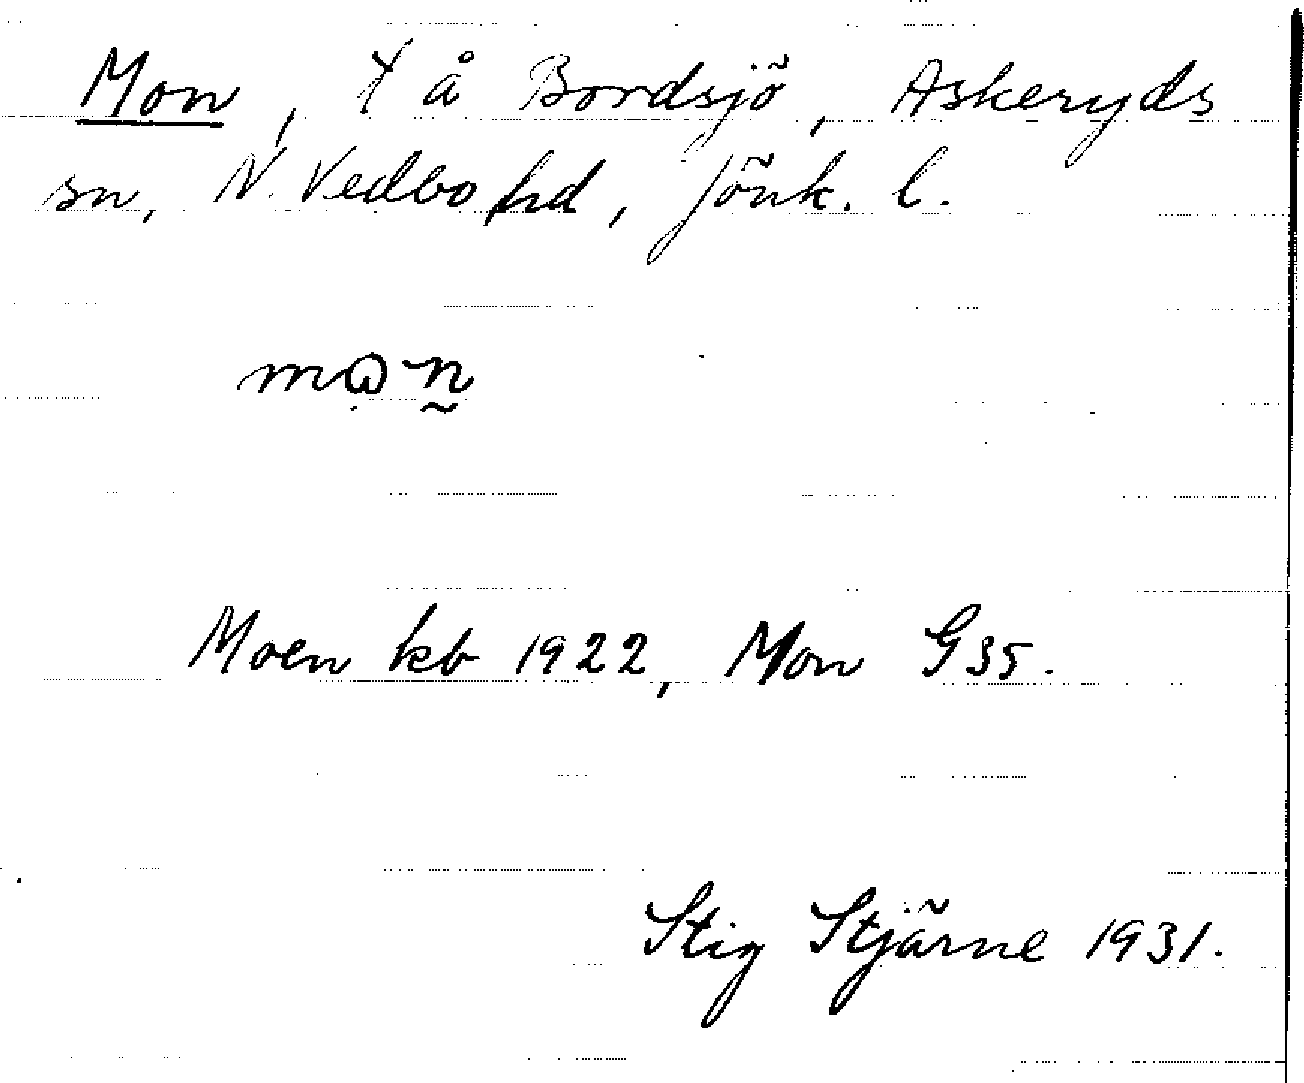 Mon, t å Bordsjö, Askeryds
sn, N. Vedbo hd, Jönk. l.
Moen kb 1922, Mon G35.
Stig Stjärne 1931.